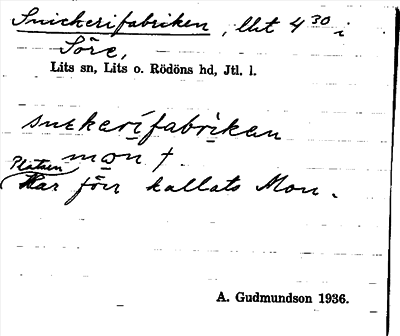 Snickerifabriken, lht 4³⁰ i
Söre,
Lits sn, Lits o. Rödöns hd, Jtl. l.
snekerifabriken
mon †
Platsen
Har förr kallats Mon.
A. Gudmundson 1936.